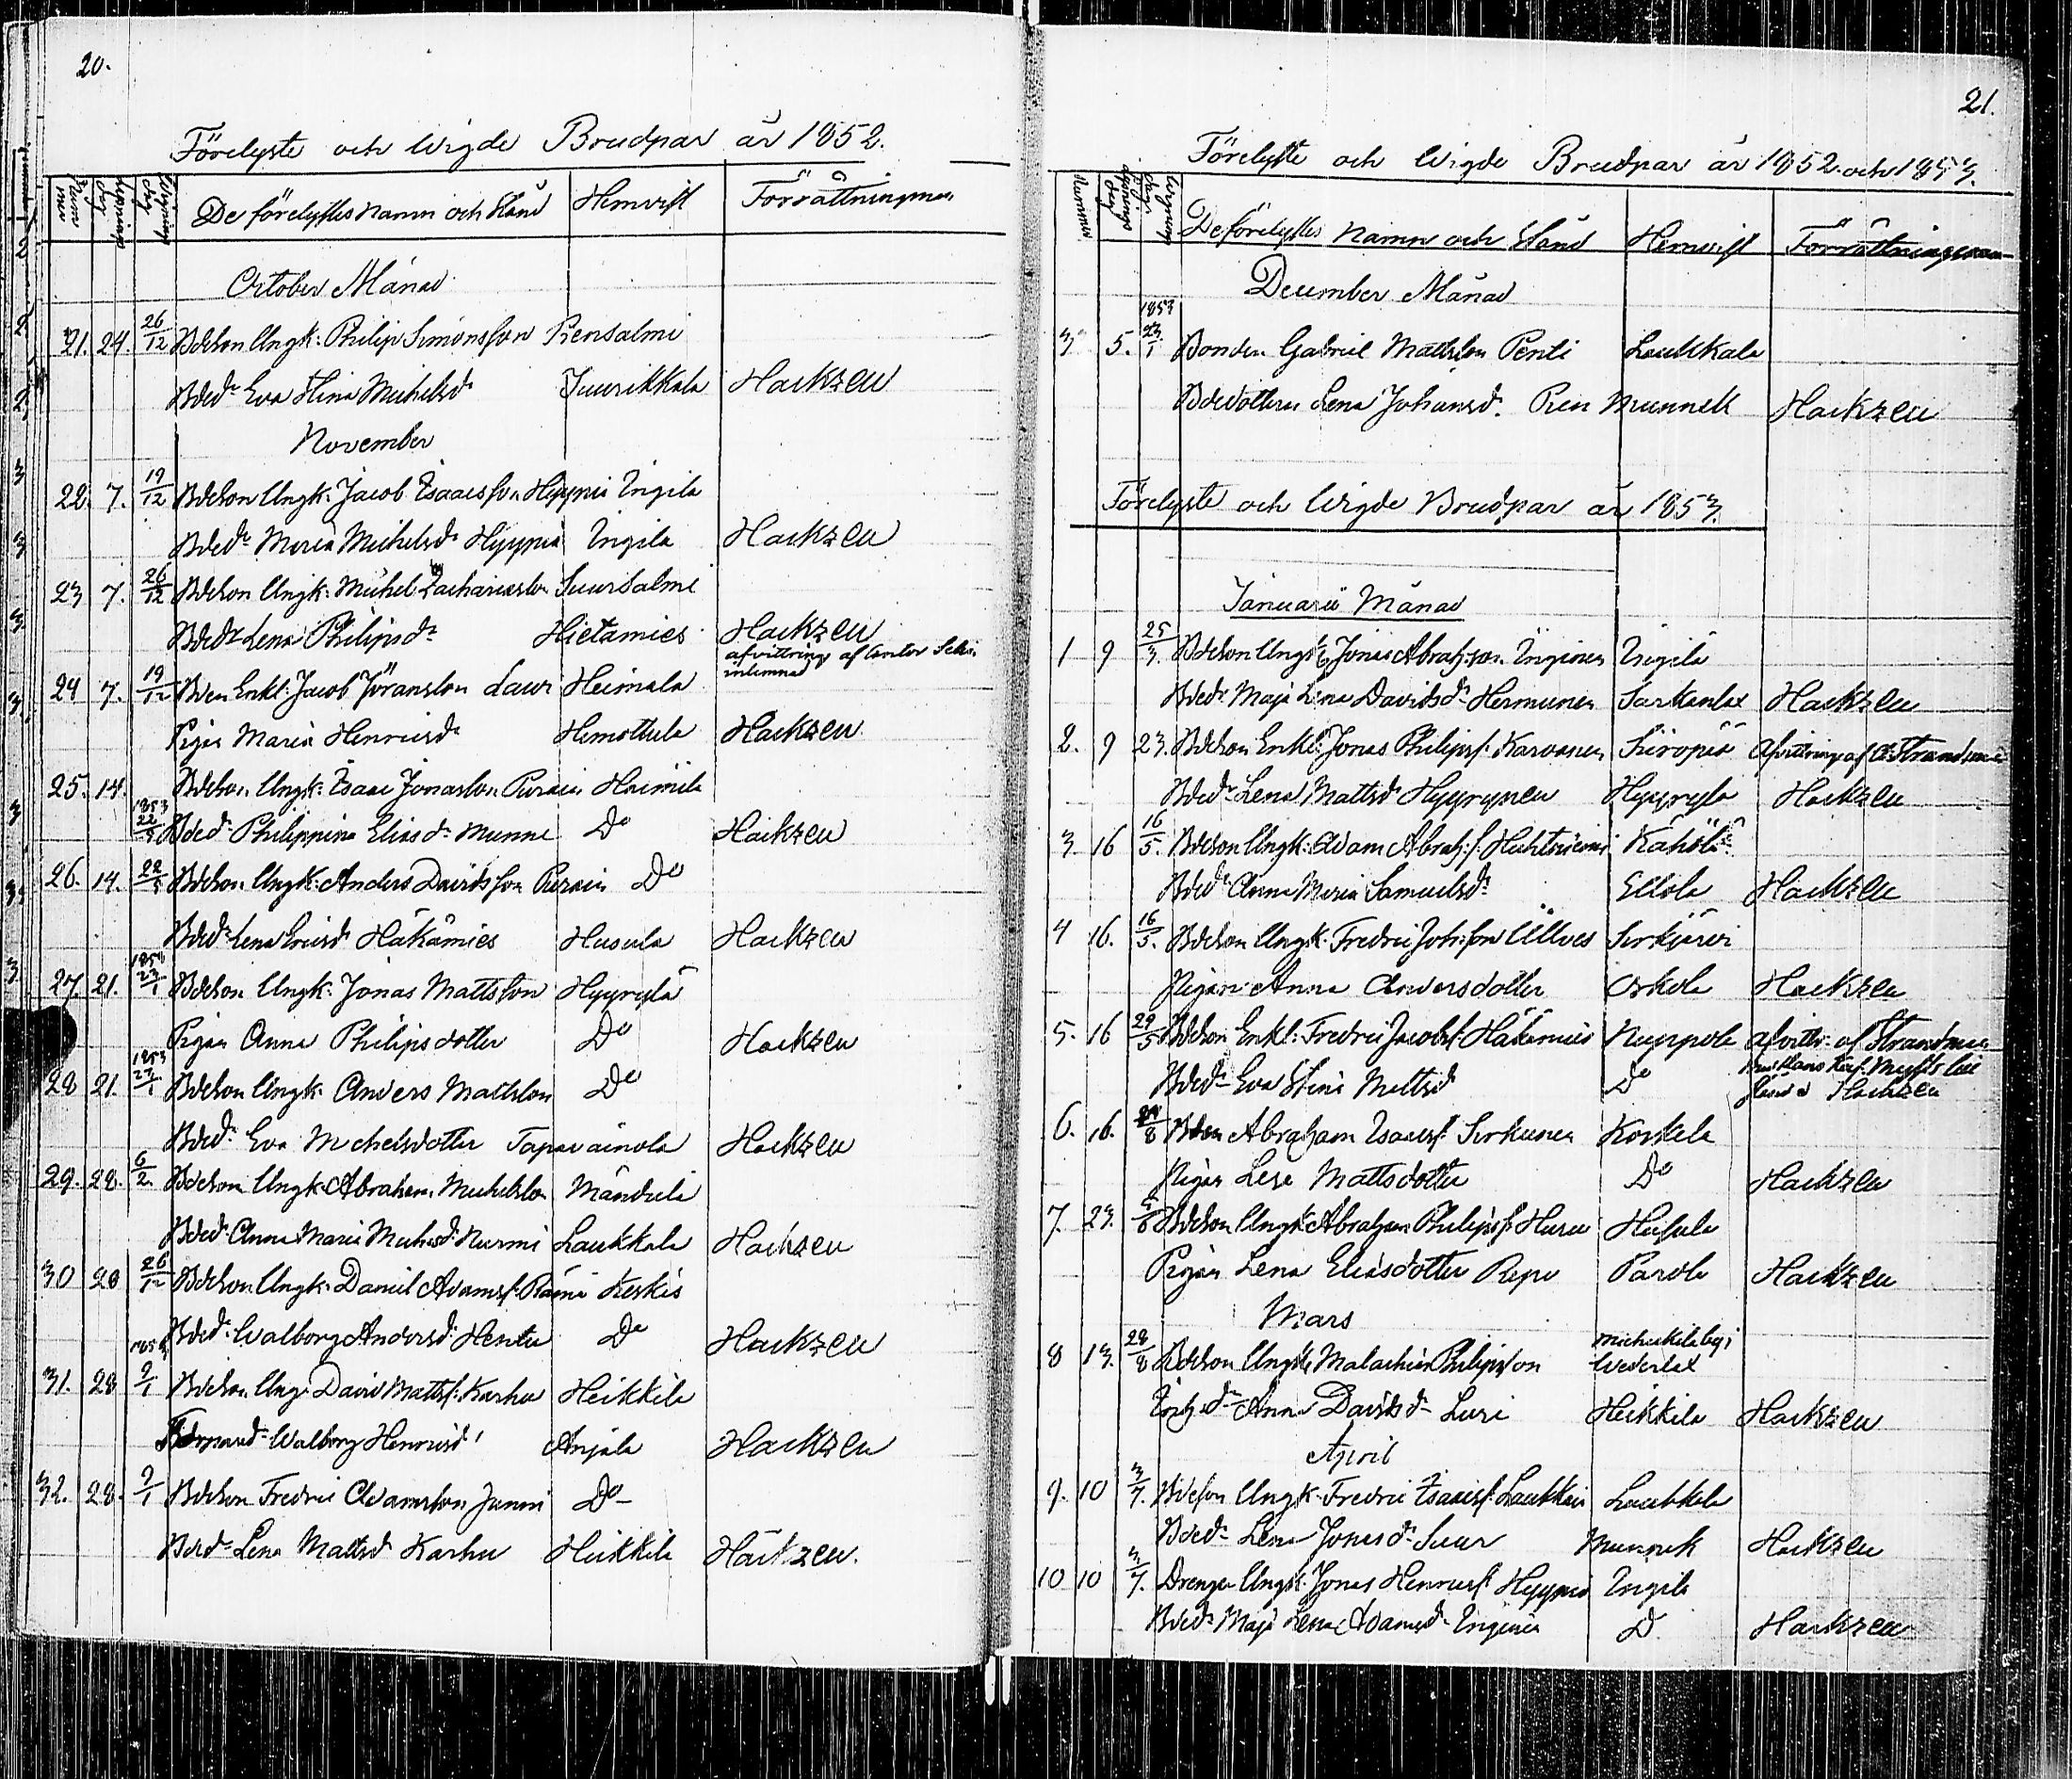 20.
Förelyste och Wigde Brudpar år 1852.
Nummer
Lysnings dag
Wignings dag
De förelystes namn och Stånd
Hemvist
Förrättningsman
October Månad
21. 24. 26/12 Bdeson Ungk: Philip Simonsson Rensalmi
Bded: Eva Stina Michelsd: Juurikkala Hackzell
November
22. 7. 19/12 Bdeson Ungk: Jacob Isaacsson Hyppiä Ingila
Bded: Maria Michelsd: Hyppiä Ingila Hackzell
23 7. 26/12 Bdeson Ungk: Michel Zachariasson Suursalmi
Bded: Lena Philipsd: Hietamies Hackzell
afvittring af
inlemnad
24 7. 19/12 Bden Enkl: Jacob Göransson Laur Heimala
Pigan Maria Henricsd: Himottula Hackzell
25. 14. Bdeson Ungk: Isaac Jonasson Purain Heimila
1853 22/5 Bded: Philippina Eliasd: Munne Do Hackzell
26. 14. 22/5 Bdeson Ungk: Anders Davidsson Purain Do
Bded: Lena Ericsd: Häkämies Husula Hackzell
27. 21. 1853 23/1 Bdeson Ungk: Jonas Mattsson Hyyrylä
Pigan Anna Philipsdotter Do Hackzell
28 21. 1853 23/1 Bdeson Ungk: Anders Mattsson Do
Bded: Eva Michelsdotter Tapavainola Hackzell
29. 28. 6/2 Bdeson Ungk: Abraham Michelsson Mändule
Bded: Anna Maria Michelsd: Nurmi Laukkala Hackzell
30 28 26/12 Bdeson Ungk: Daniel Adamsf: Rämä Keskis
Bded: Walborg Andersd: Henttu Do Hackzell
31. 28 1853 9/1 Bdeson Ungk: David Mattsf: Karhu Heikkilä
Walborg Henricsd: Anjala Hackzell
32. 28. 9/1 Bdeson Fredric Adamsson Junni Do
Bded: Lena Mattsd: Karhu Heikkilä Hackzell.
21.
Förelyste och Wigde Brudpar år 1852. och 1853.
Nummer
Lysnings dag
Wignings dag
De förelystes Namn och Stånd
Hemvist
Förrättningsman
December Månad
3 5. 1853 23/1 Bonden Gabriel Mattsson Penti Laukkala
Bdedottern Lena Johansd. Ren Munnek Hackzell
Förelyste och Wigde Brudpar år 1853.
Januarii Månad
1 9 25/3. Bdeson Ungk: Jonas Abrah:son Inginen Ingilä
Bded: Maja Lena Davidsd: Hermunen Sarkanlax Hackzell
2. 9 23. Bdeson Enkl: Jonas Philipsf: Karvanen Säröpiä Afvittring af Strandman
Bded: Lena Mattsd: Hyyrynen Hyyrylä Hackzell
3. 16 16/5. Bdeson Ungk: Adam Abrah:f: Huhtiniemi Kähölä
Bded: Anna Maria Samuelsd: Ellola Hackzell
4 16. 16/5. Bdeson Ungk: Fredric Joh:son Ällves Sirkjärvi
Pigan Anna Andersdotter Askola Hackzell
5. 16 29/5 Bdeson Enkl: Fredric Jacobsf: Häkämies Nuppola afvittr: af Strandman
Bded: Eva Stina Mattsd: Do Hackzell
6. 16. 28/8 Bden Abraham Isaacsf: Sirkunen Korkela
Pigan Lisa Mattsdotter Do Hackzell
7. 23. 5/6 Bdeson Ungk: Abraham Philipsf: Huru Husula
Pigan Lena Eliasdotter Repo Parola Hackzell
Mars
8 13. 28/8 Bdeson Ungk: Malachias Philipsson Wederlax
Anna Davidsd: Lusi Heikkilä Hackzell
April
9. 10 3/7. Bdeson Ungk: Fredric Isaacsf: Laukkain Laukkala
Bded: Lena Jonasd: Suur Munnek Hackzell
10 10 3/7. Drengen Ungk: Jonas Henricsf: Hyppiä Ingila
Bded: Maja Lena Adamsd: Inginen D. Hackzell